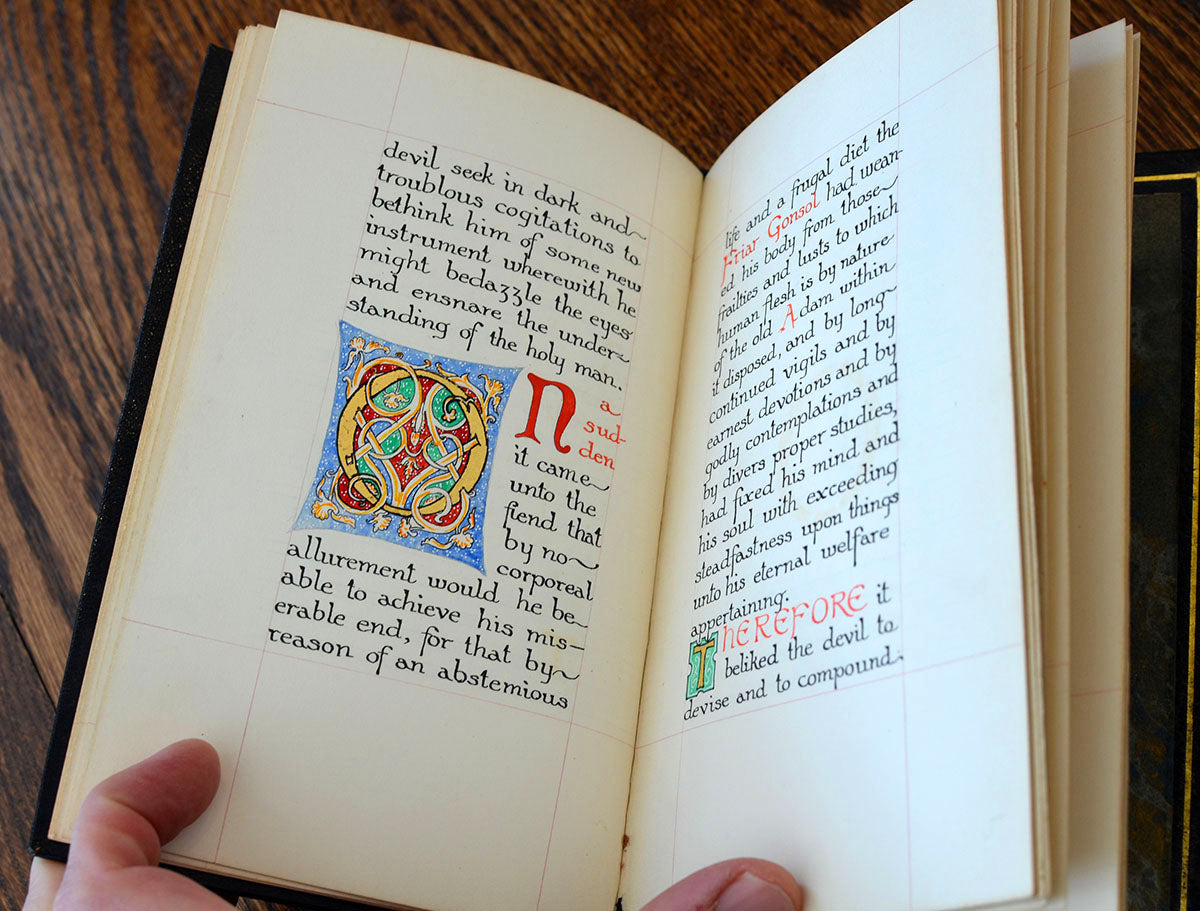 devil seek in dark and
troublous cogitations to
bethink him of some new
instrument wherewith he
might bedazzle the eyes
and ensnare the under-
standing of the holy man.
On a
sud-
den
it came
unto the
fiend that
by no
corporeal
allurement would he be
able to achieve his mis-
erable end, for that by
reason of an abstemious
life and a frugal diet the
Friar Gonsol had wean-
ed his body from those
frailties and lusts to which
human flesh is by nature
of the old Adam within
it disposed, and by long-
continued vigils and by
earnest devotions and by
godly contemplations and
by divers proper studies,
had fixed his mind and
his soul with exceeding
steadfastness upon things
unto his eternal welfare
appertaining.
THEREFORE it
beliked the devil to
devise and to compound